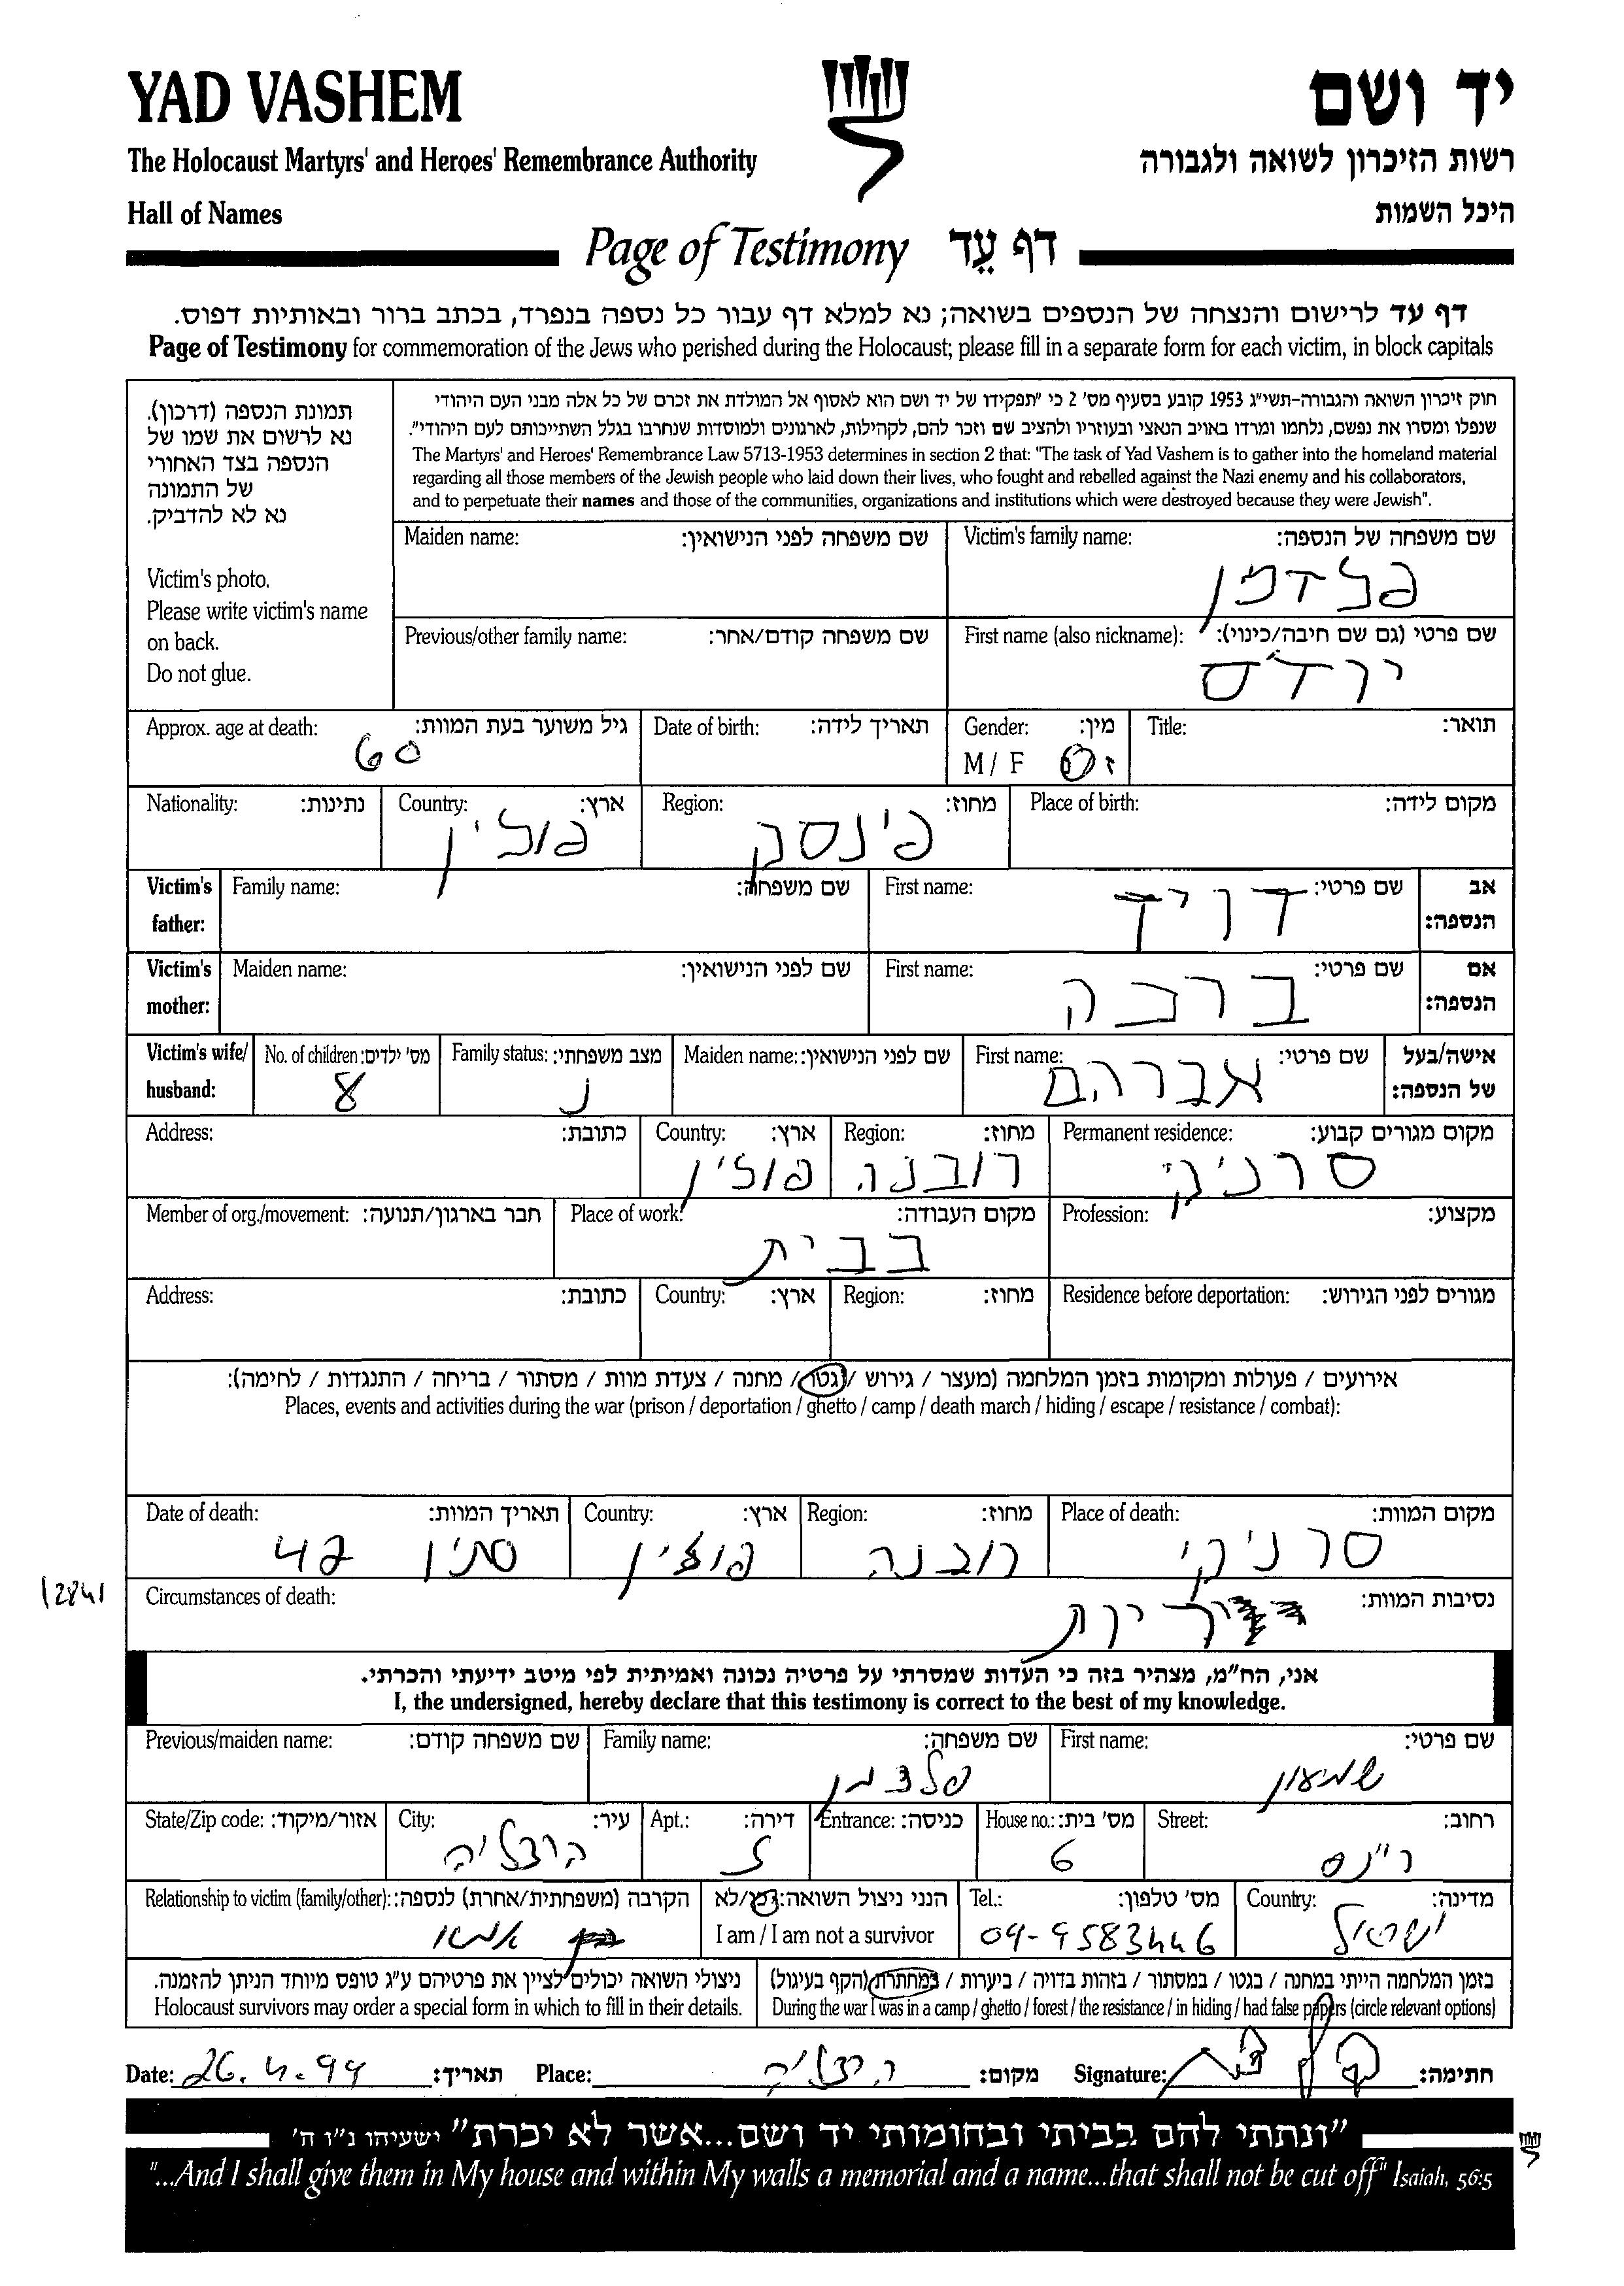 YAD VASHEM
יד ושם
The Holocaust Martyrs' and Heroes' Remembrance Authority
רשות הזיכרון לשואה ולגבורה
Hall of Names
היכל השמות
Page of Testimony דף עֵד
דף עד לרישום והנצחה של הנספים בשואה; נא למלא דף עבור כל נספה בנפרד, בכתב ברור ובאותיות דפוס.
Page of Testimony for commemoration of the Jews who perished during the Holocaust; please fill in a separate form for each victim, in block capitals
תמונת הנספה (דרכון).
נא לרשום את שמו של
הנספה בצד האחורי
של התמונה
נא לא להדביק.
Victim's photo.
Please write victim's name
on back.
Do not glue.
חוק זיכרון השואה והגבורה-תשי"ג 1953 קובע בסעיף מס' 2 כי "תפקידו של יד ושם הוא לאסוף אל המולדת את זכרם של כל אלה מבני העם היהודי
שנפלו ומסרו את נפשם, נלחמו ומרדו באויב הנאצי ובעוזריו ולהציב שם וזכר להם, לקהילות, לארגונים ולמוסדות שנחרבו בגלל השתייכותם לעם היהודי".
The Martyrs' and Heroes' Remembrance Law 5713-1953 determines in section 2 that: "The task of Yad Vashem is to gather into the homeland material
regarding all those members of the Jewish people who laid down their lives, who fought and rebelled against the Nazi enemy and his collaborators,
and to perpetuate their names and those of the communities, organizations and institutions which were destroyed because they were Jewish".
Victim's family name: שם משפחה של הנספה:
פלדמן
Maiden name: שם משפחה לפני הנישואין:
First name (also nickname): שם פרטי (גם שם חיבה/כינוי):
יודס
Previous/other family name: שם משפחה קודם/אחר:
Title: תואר:
Gender: מין:
M / F ז נ
Date of birth: תאריך לידה:
Approx. age at death: גיל משוער בעת המוות:
60
Place of birth: מקום לידה:
Region: מחוז:
פינסק
Country: ארץ:
פולין
Nationality: נתינות:
Victim's father: אב הנספה:
First name: שם פרטי:
דויד
Family name: שם משפחה:
Victim's mother: אם הנספה:
First name: שם פרטי:
ברכה
Maiden name: שם לפני הנישואין:
Victim's wife/ husband: אישה/בעל של הנספה:
First name: שם פרטי:
אברהם
Maiden name: שם לפני הנישואין:
Family status: מצב משפחתי:
נ
No. of children: מס' ילדים:
8
Permanent residence: מקום מגורים קבוע:
סרניקי
Region: מחוז:
רובנה
Country: ארץ:
פולין
Address: כתובת:
Profession: מקצוע:
Place of work: מקום העבודה:
בבית
Member of org./movement: חבר בארגון/תנועה:
Residence before deportation: מגורים לפני הגירוש:
Region: מחוז:
Country: ארץ:
Address: כתובת:
אירועים / פעולות ומקומות בזמן המלחמה (מעצר / גירוש / גטו / מחנה / צעדת מוות / מסתור / בריחה / התנגדות / לחימה):
Places, events and activities during the war (prison / deportation / ghetto / camp / death march / hiding / escape / resistance / combat):
Place of death: מקום המוות:
סרניקי
Region: מחוז:
רובנה
Country: ארץ:
פולין
Date of death: תאריך המוות:
סתיו 42
Circumstances of death: נסיבות המוות:
אני, הח"מ, מצהיר בזה כי העדות שמסרתי על פרטיה נכונה ואמיתית לפי מיטב ידיעתי והכרתי.
I, the undersigned, hereby declare that this testimony is correct to the best of my knowledge.
First name: שם פרטי:
שמעון
Family name: שם משפחה:
פלדמן
Previous/maiden name: שם משפחה קודם:
Street: רחוב:
ריינס
House no.: מס' בית:
6
Entrance: כניסה:
Apt.: דירה:
City: עיר:
הרצליה
State/Zip code: אזור/מיקוד:
Country: מדינה:
ישראל
Tel.: מס' טלפון:
09-9583446
הנני ניצול השואה: כן/לא
I am / I am not a survivor
Relationship to victim (family/other): הקרבה (משפחתית/אחרת) לנספה:
בזמן המלחמה הייתי במחנה / בגטו / במסתור / בזהות בדויה / ביערות / במחתרת (הקף בעיגול)
During the war I was in a camp / ghetto / forest / the resistance / in hiding / had false papers (circle relevant options)
ניצולי השואה יכולים לציין את פרטיהם ע"ג טופס מיוחד הניתן להזמנה.
Holocaust survivors may order a special form in which to fill in their details.
Date: 26.4.99 תאריך:
Place: הרצליה מקום:
Signature: חתימה:
"ונתתי להם בביתי ובחומותי יד ושם...אשר לא יכרת" ישעיהו נ"ו ה'
"...And I shall give them in My house and within My walls a memorial and a name...that shall not be cut off" Isaiah, 56:5